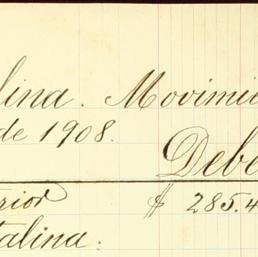 lina. Movimi
de 1908.
Debe
rior $ 285.4
talina.